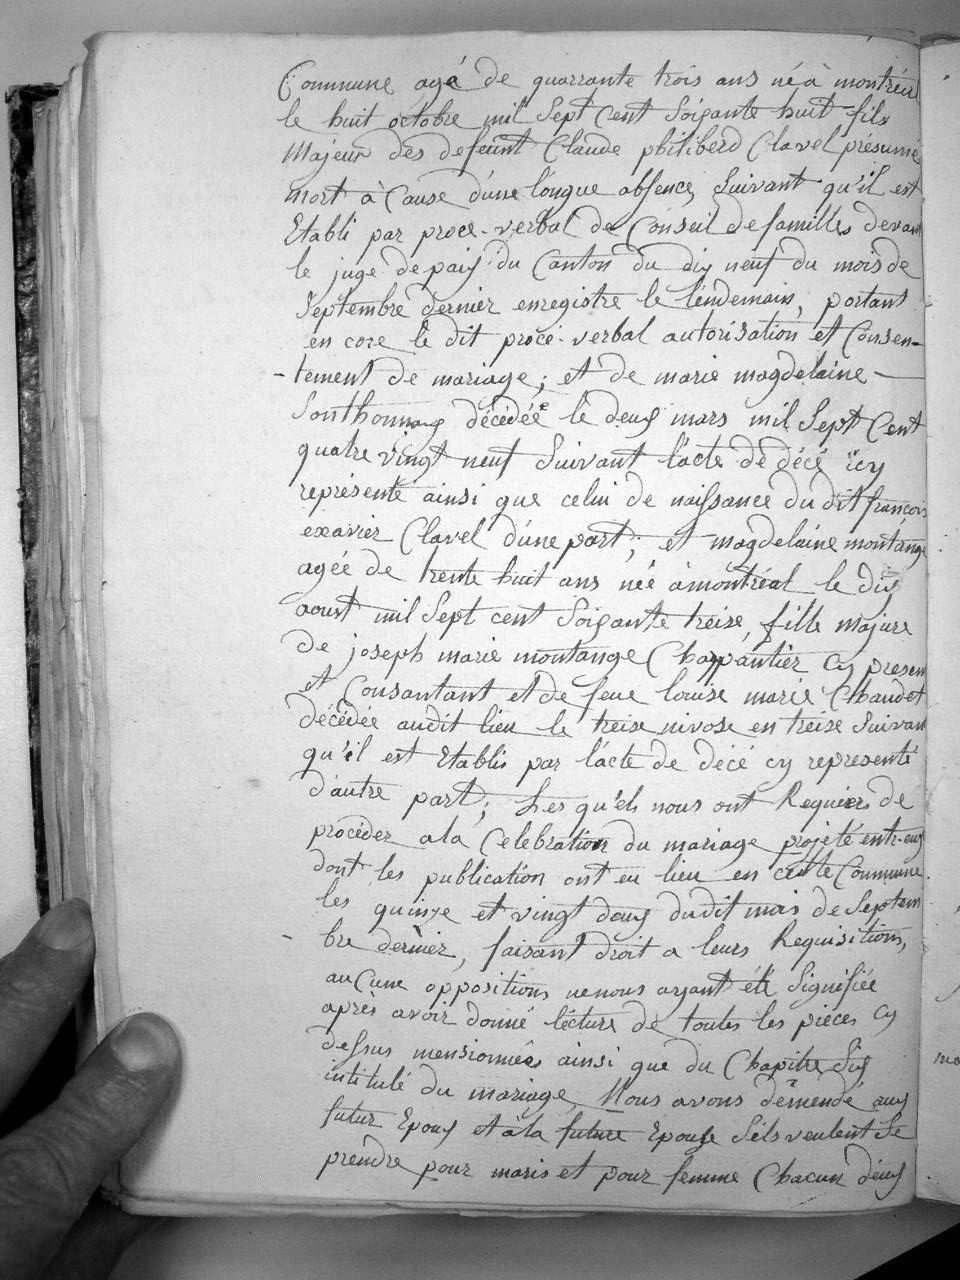 Commune agé de quarrante trois ans né à montréal
le huit octobre mil Sept Cent Soixante huit fils
Majeur des defeunt Claude philiberd Clavel présumé
mort à Cause d'une longue absence, Suivant qu'il est
Etabli par proce-verbal de Conseil de familles devant
le juge de paix du Canton du dix neuf du mois de
Septembre dernier enregistre le lendemain, portant
en core le dit procé-verbal autorisation et Consen-
-tement de mariage; et de marie magdelaine
Sonthonnax décédéé le deux mars mil Sept Cent
quatre vingt neuf Suivant l'acte de décé icy
représenté ainsi que celui de naissance du dit francois
exavier Clavel d'une part; et magdelaine montange
agée de trente huit ans née à montréal le dix
aoust mil Sept cent Soixante treise, fille majure
de joseph marie montange Charpantier cy present
et Consantant et de feue louise marie Chaudet
décédée audit lieu le treise nivose en treise Suivant
qu'il est Etablis par l'acte de décé cy representé
d'autre part; Les qu'els nous ont Requiers de
procéder a la Celebration du mariage projeté entr-eux
dont les publication ont eu lieu en cette Commune
les quinze et vingt deux dudit mois de Septem
bre dernier, faisant droit a leurs Requisitions,
au Cune oppositions ne nous ayant été Signifiée
après avoir donné lécture de toutes les piéces cy
dessus mensionnées ainsi que du Chapitre Six
intitulé du mariage, Nous avons démendé aux
futur Epoux et à la future Epouse S'éls veulent Se
prendre pour maris et pour femme Chacun d'eux